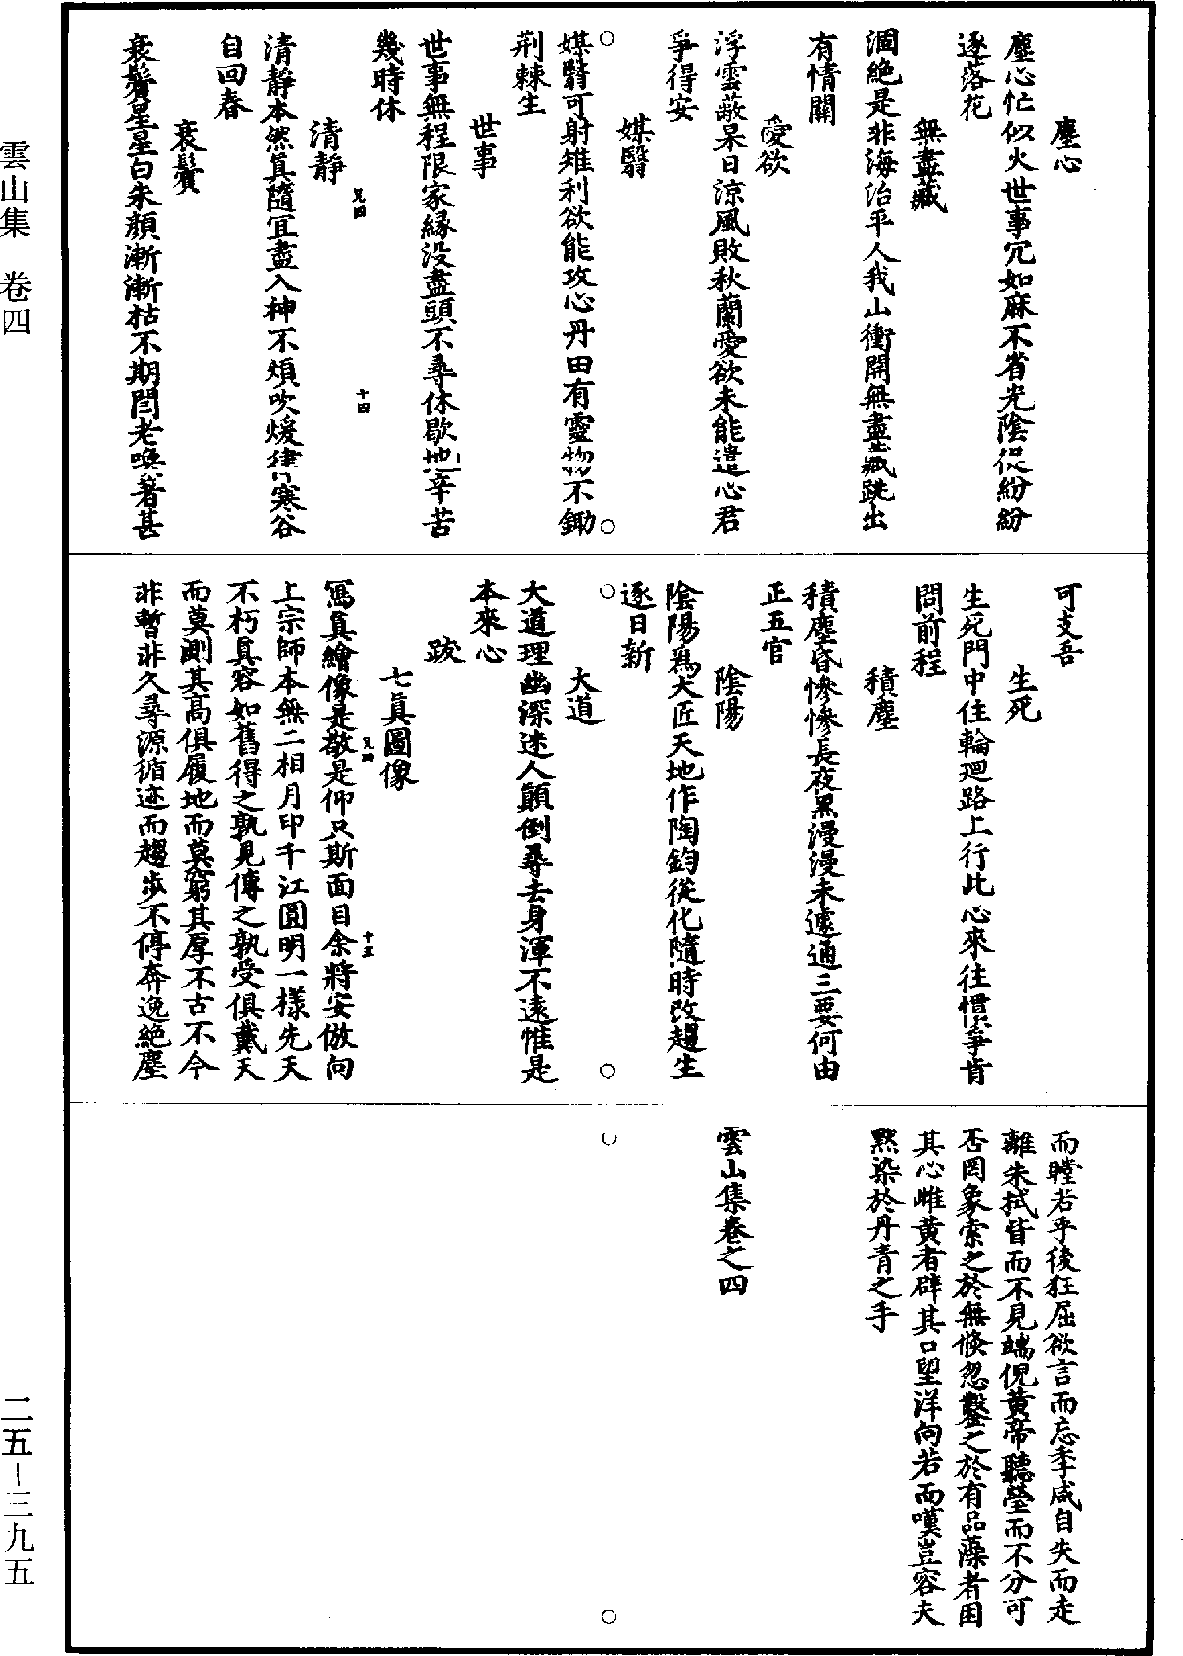 塵心
塵心忙似火世事冗如麻不省光陰促紛紛
逐落花
無盡藏
涸絶是非海治平人我山衝開無盡藏跳出
有情關
愛欲
浮雲蔽杲日涼風敗秋蘭愛欲未能遣心君
爭得安
媒翳
媒翳可射雉利欲能攻心丹田有靈物不鋤
荆棘生
世事
世事無程限家緣没盡頭不尋休歇地辛苦
幾時休
清靜
清靜本然真隨宜盡入神不煩吹煖律寒谷
自回春
衰鬢
衰鬢星星白朱顏漸漸枯不期閻老喚著甚
可支吾
生死
生死門中住輪迴路上行比心來往慣爭肯
問前程
積塵
積塵昏慘慘長夜黑漫漫未遽通三要何由
正五官
陰陽
陰陽爲大匠天地作陶鈞從化隨時改趨生
逐日新
大道
大道理幽深迷人顛倒尋去身渾不遠惟是
本來心
跋
七真圖像
寫真繪像是敬是仰只斯面目余將安倣向
上宗師本無二相月印千江圓明一樣先天
不朽真容如舊得之孰見傳之孰受俱戴天
而莫測其高俱履地而莫窮其厚不古不今
非暫非久尋源循迹而趨步不停奔逸絶塵
而瞠若乎後狂屈欲言而忘季咸自失而走
離朱拭眥而不見端倪黄帝聽瑩而不分可
否罔象索之於無倏忽鑿之於有品藻者困
其心雌黄者辟其口望洋向若而嘆豈容夫
點染於丹青之手
雲山集卷之四
雲山集　卷四
二五－三九五